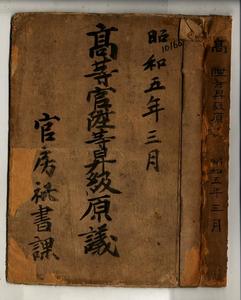 昭和五年三月
10166
高等官陞等昇級原議
官房秘書課
高
昭和五年三月